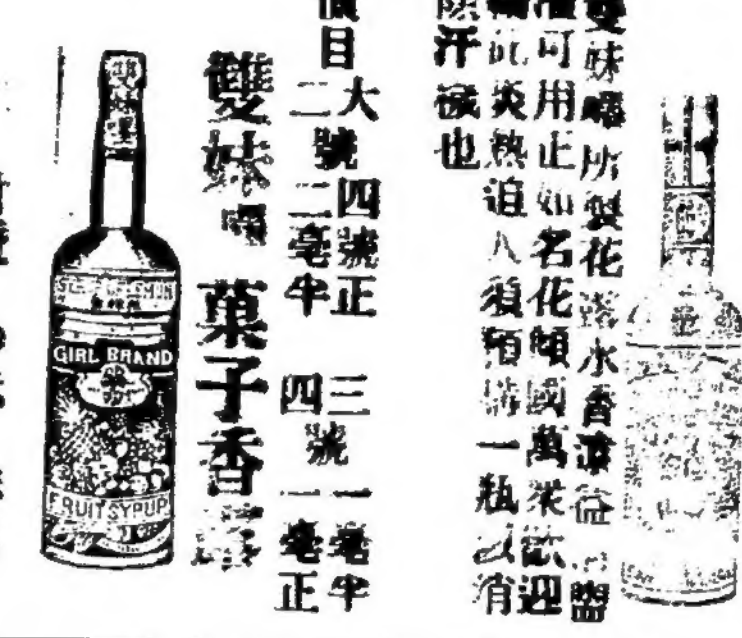 雙妹嚜所製花露水香濃益盥
可用正如名花傾國萬衆歡迎
此炎熱迫人須預備一瓶以消
除汗穢也
價目
大號四號正
二號二毫半
三號一毫半
四號一毫正
雙妹嚜菓子香露
GIRL BRAND
FRUIT SYPUP